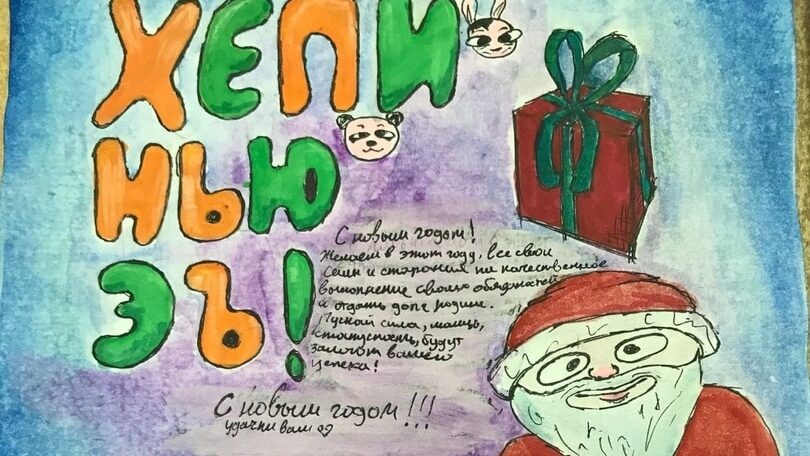 ХЕПИ
НЬЮ
ЭЪ!
С новым годом!
Желаем в этом году, все свои
силы и старания на качественное
выполнение своих
и отдать долг родине.
Пускай сила, мощь,
будут
залогом вашего
успеха!
С новым годом!!!
удачи вам ♡